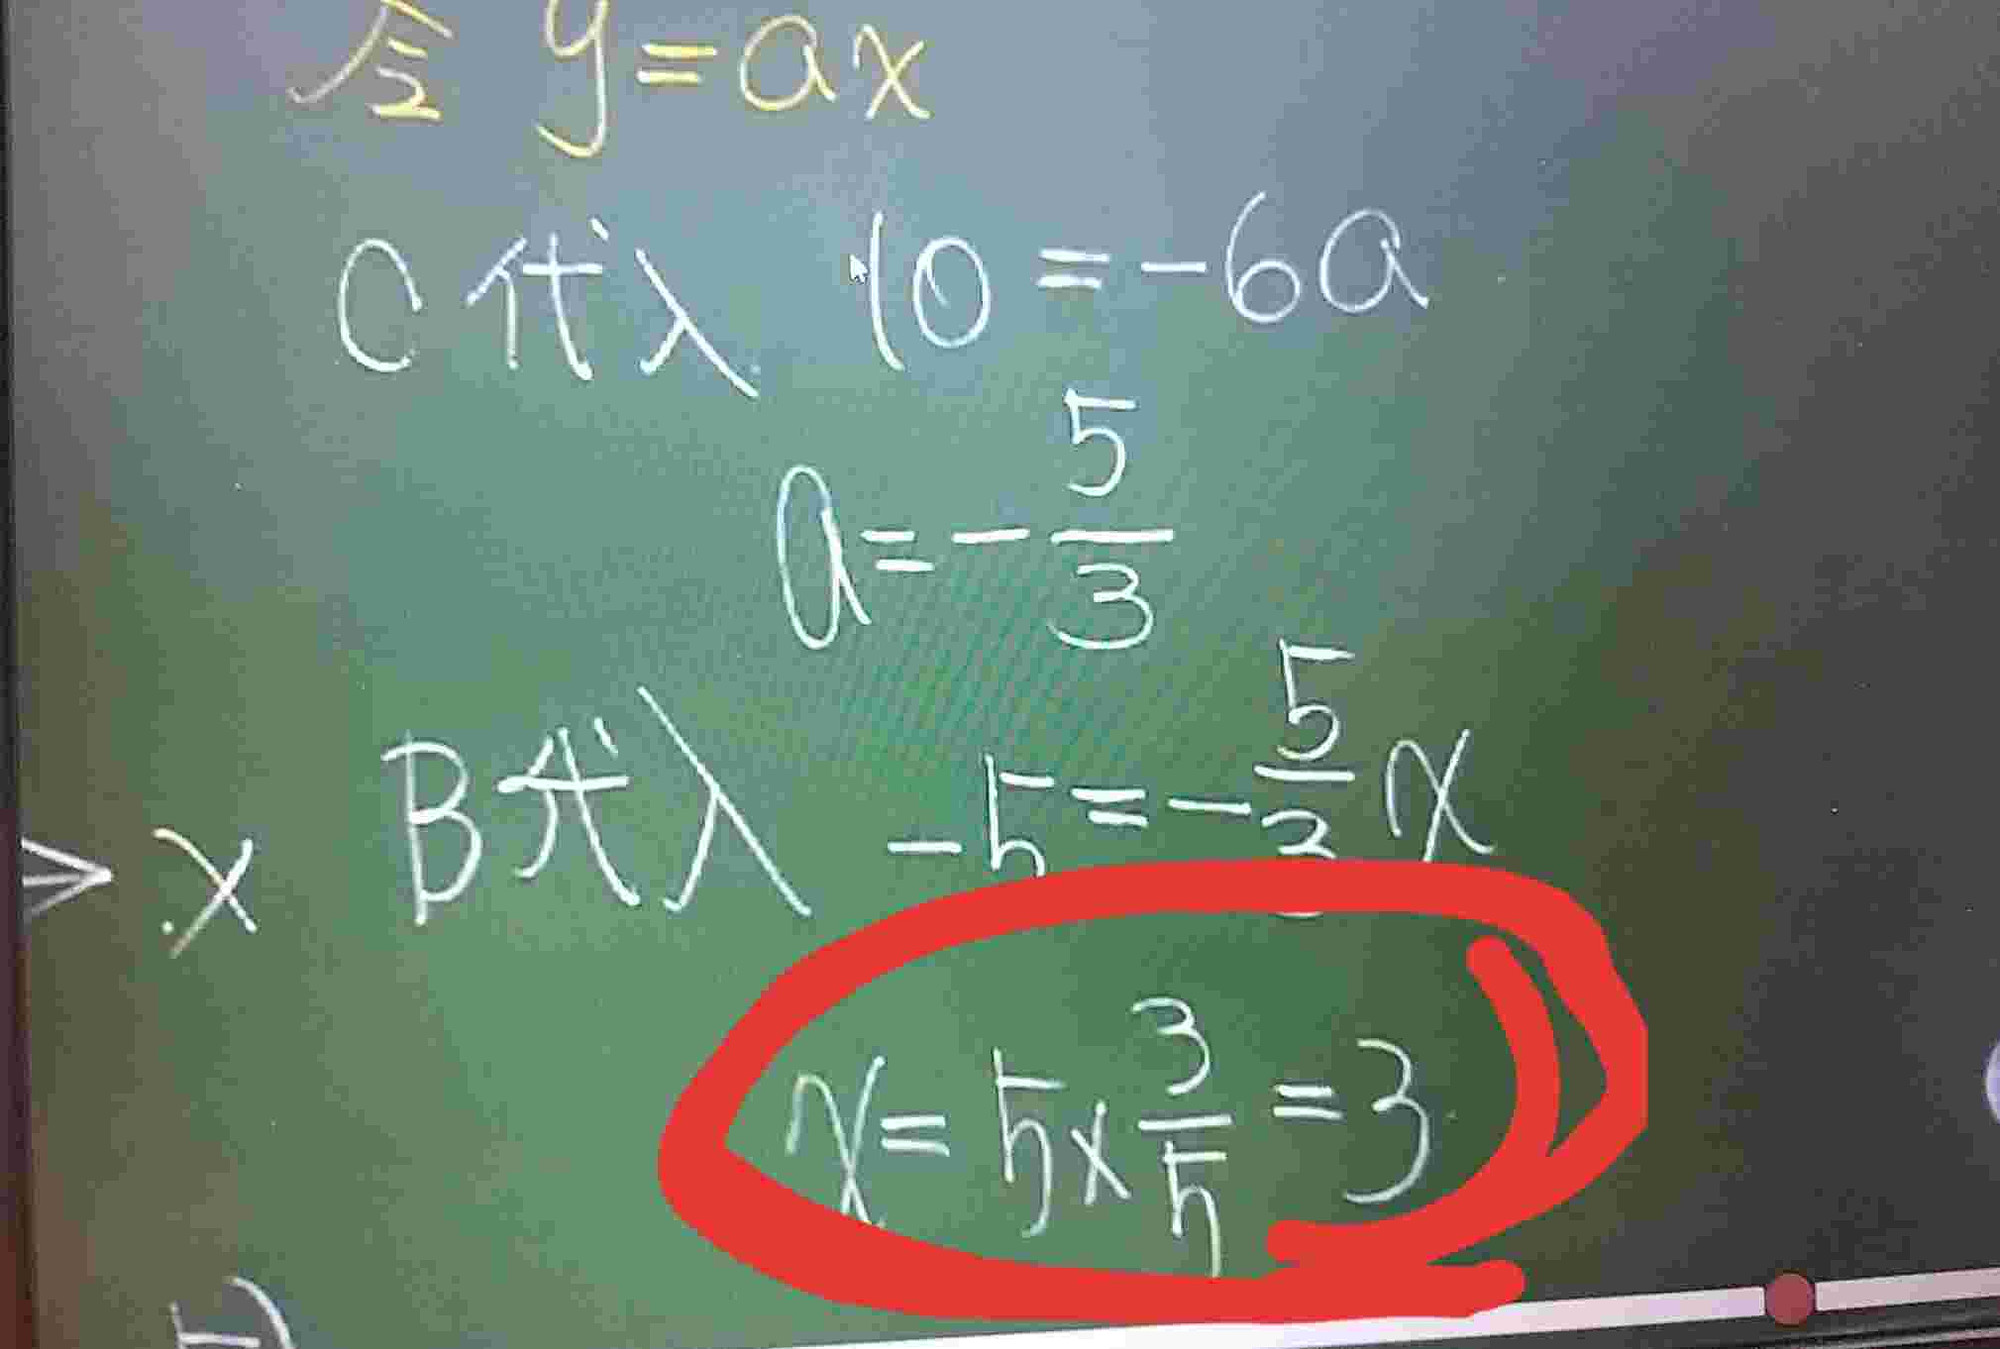 y=ax
C代入 10=-6a
a=-5/3
x B代入 -5=-5/3x
x=5×3/5=3